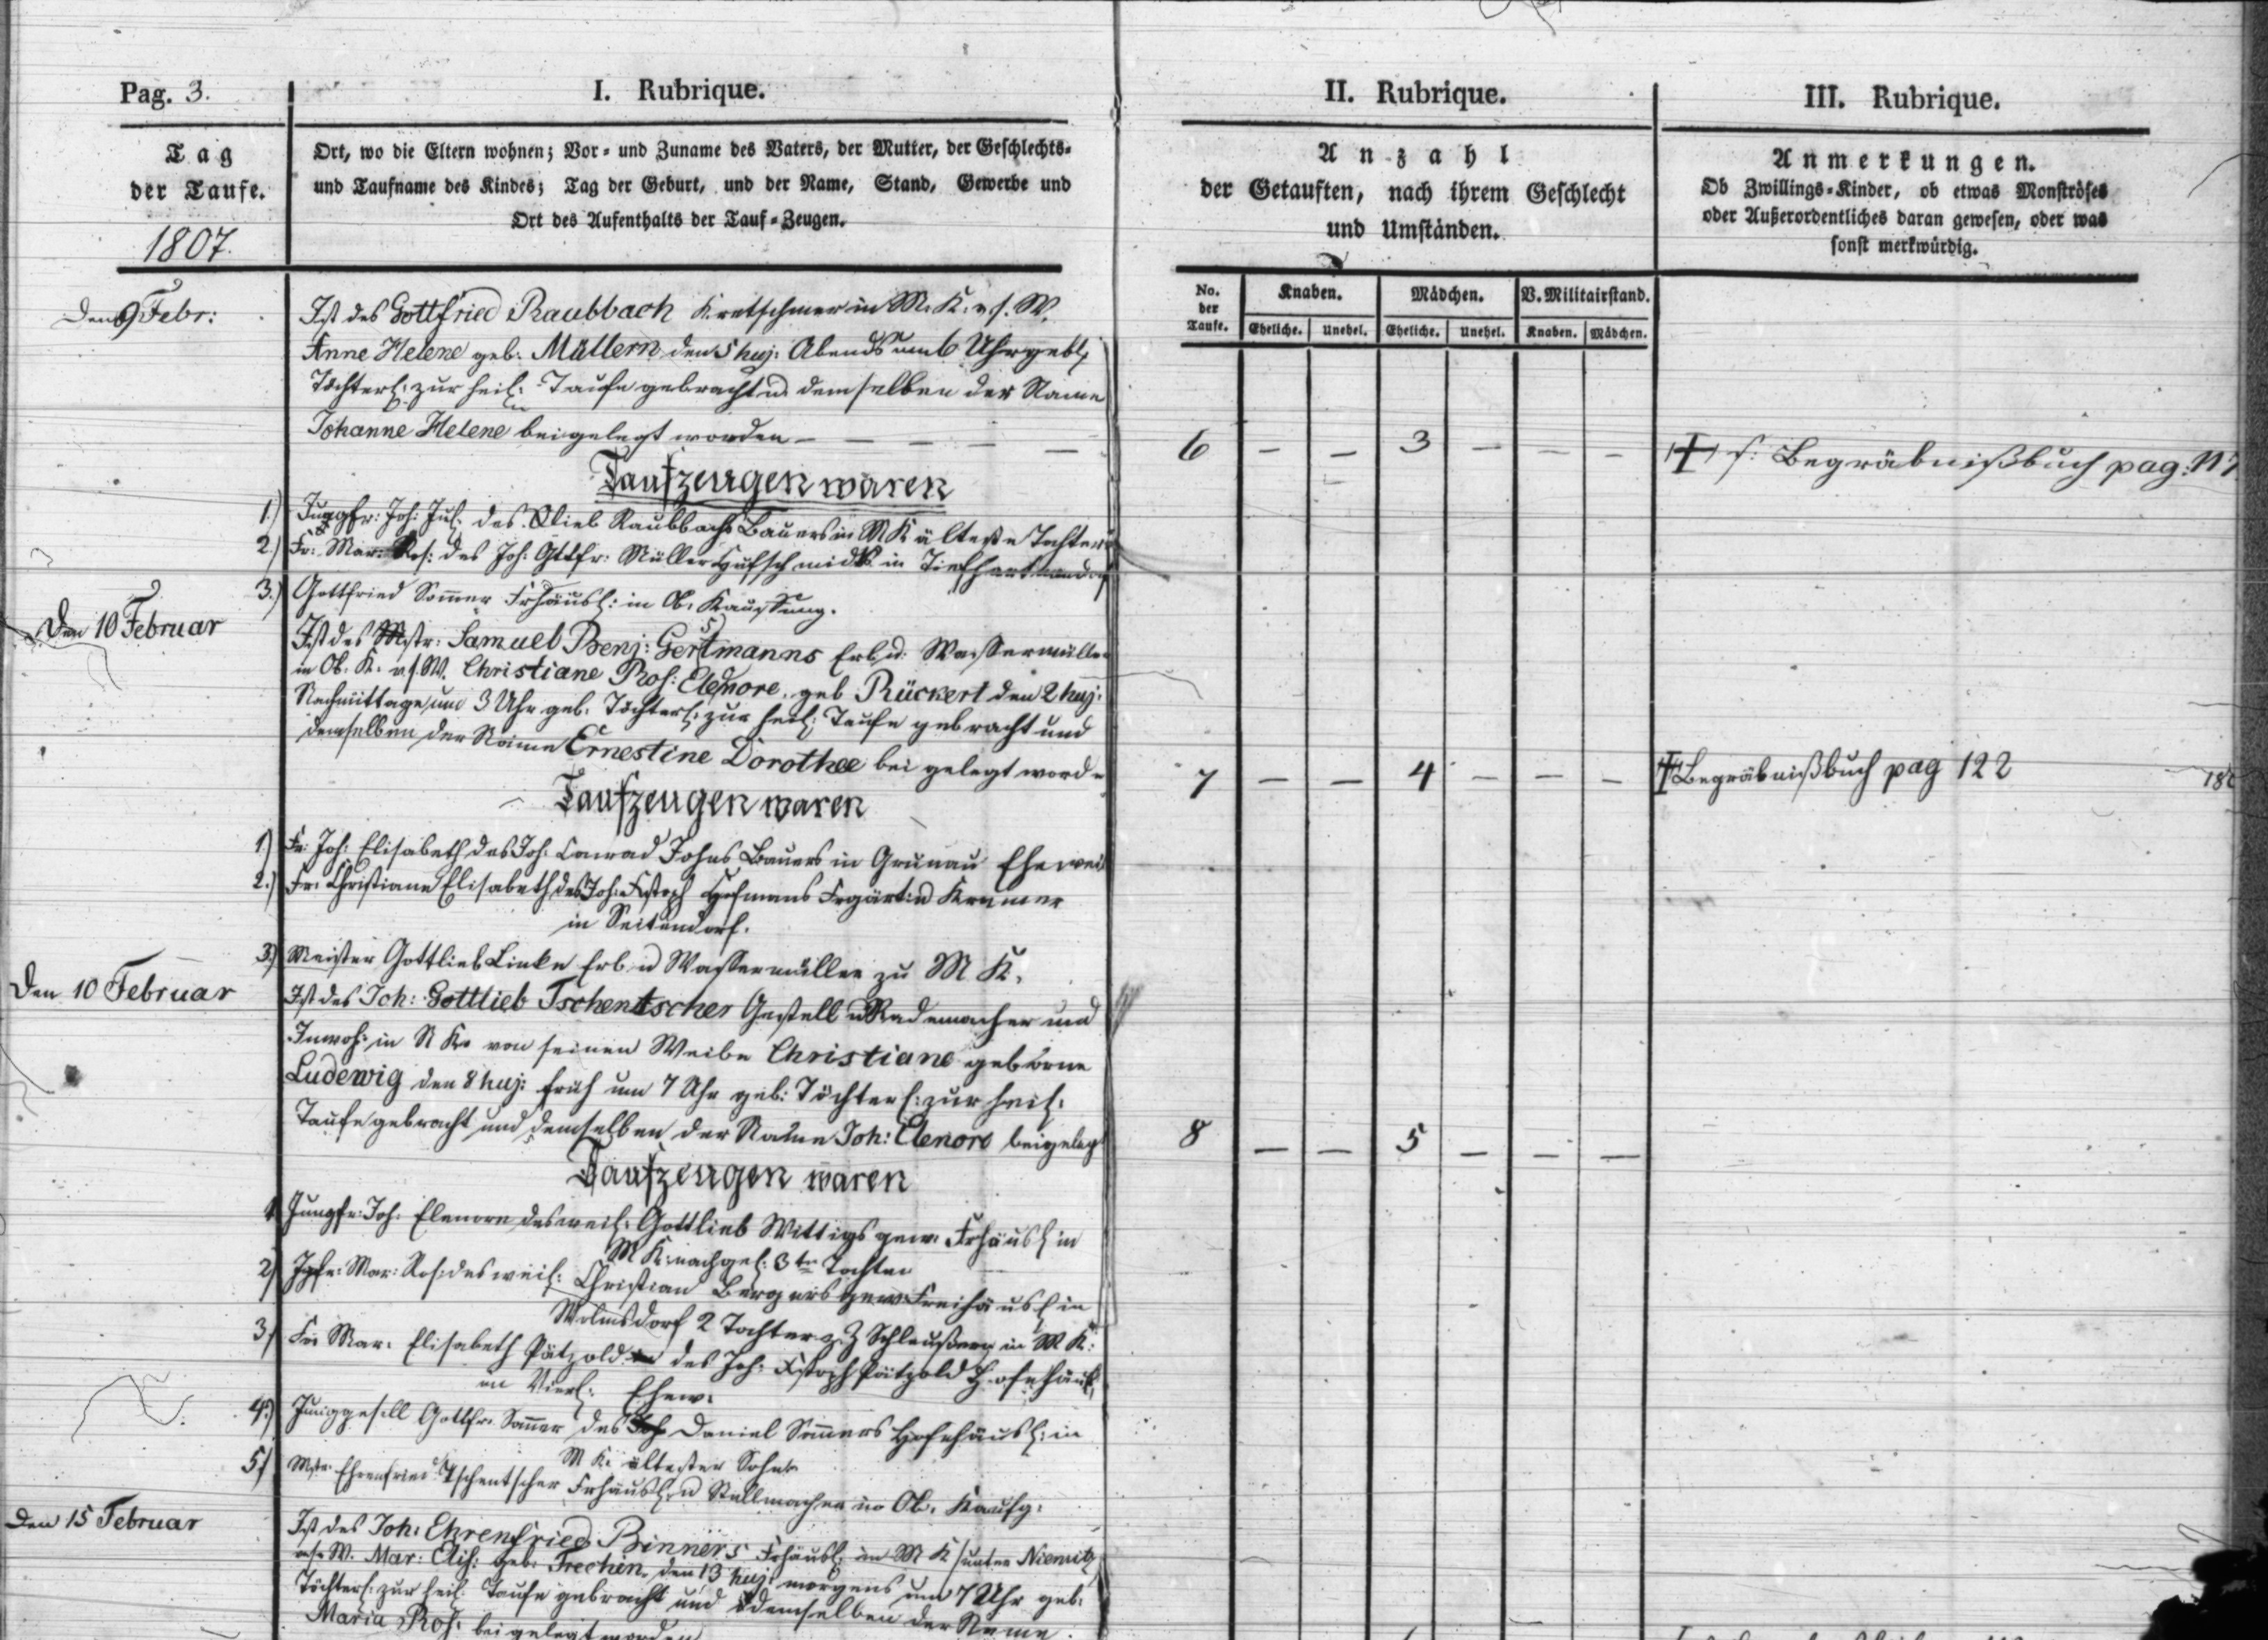 Pag. 3.
I. Rubrique.
II. Rubrique.
III. Rubrique.
Tag
der Taufe.
1807.
Ort, wo die Eltern wohnen; Vor- und Zuname des Vaters, der Mutter, der Geschlechts-
und Taufname des Kindes; Tag der Geburt, und der Name, Stand, Gewerbe und
Ort des Aufenthalts der Tauf-Zeugen.
Anzahl
der Getauften, nach ihrem Geschlecht
und Umständen.
Anmerkungen.
Ob Zwillings-Kinder, ob etwas Monströses
oder Außerordentliches daran gewesen, oder was
sonst merkwürdig.
No. der Taufe.
Knaben. Mädchen. V. Militairstand.
Eheliche. Unehel. Eheliche. Unehel. Knaben. Mädchen.
Den 9 Febr:
Ist des Gottfried Raubbach Kretschmer in M. K. v. s. W.
Anne Helene geb. Müllern den 5 huj: Abends um 6 Uhr geb.
Töchterl: zur heil: Taufe gebracht u. demselben der Name
Johanne Helene beigelegt worden — — — — —
6 — — 3 — — —
s: Begräbnißbuch pag:
Taufzeugen waren
1.) Jungfr: Joh: Jul: des Raubbachs Bauers in M K älteste Tochter
2.) Fr. Mar: Ros: des Joh: Gttfr: Müller Hufschmidts in
3.) Gottfried Som̄er Frhäusl: in Ob. Kauffung.
Den 10 Februar
Ist des Mstr: Samuel Benj: Gerstmanns Erb u. Wassermüller
in Ob. K. v. s. W. Christiane Ros: Elenore, geb Rückert den 2 huj:
Nachmittage um 3 Uhr geb. Töchterl: zur heil: Taufe gebracht und
demselben der Name Ernestine Dorothee bei gelegt word.
7 — — 4 — — —
Begräbnißbuch pag 122
Taufzeugen waren
1.) Fr. Joh: Elisabeth des Joh. Conrad Johns Bauers in Grunau Eheweib
2.) Fr. Christiane Elisabeth des Joh. Hofmans Frgärt. u Kramer
in Seitendorf.
3.) Meister Gottlieb Linke Erb u Wassermüller zu M K.
Den 10 Februar
Ist des Joh: Gottlieb Tschentscher Gestell u Rademacher und
Inwoh: in N K. von seinen Weibe Christiane geborne
Ludewig den 8 huj: früh um 7 Uhr geb: Töchterl: zur heil:
Taufe gebracht und demselben der Name Joh: Elenore beigelegt
8 — — 5 — — —
Taufzeugen waren
1 Jungfr: Joh: Elenore des weil: Gottlieb Wittigs gew. Frhäusl in
M K. nachgel: 3te Tochter
2) Jgfr: Mar: Ros: des weil: Christian Bergers gew. Freihäusl in
Wolmsdorf 2 Tochter z. Z Schleußerin in M K:
3) Fr: Mar. Elisabeth Pätzold des Joh: Pätzold Hofehäusl.
in Ehew.
4.) Junggesell Gottfr. Som̄er des Daniel Som̄ers Hofehäusl: in
M K. ältester Sohn
5) Mstr. Ehrenfried Tschentscher Frhäusl. u Stellmacher in Ob. Kauffg:
Den 15 Februar
Ist des Joh: Ehrenfried Binners Frhäusl: in M K /unter Niemitz
v. s. W. Mar: Elis: geb. Frechin, den 13 huj: morgens um 7 Uhr geb.
Töchterl: zur heil. Taufe gebracht und demselben der Name
Maria Ros: bei gelegt worden